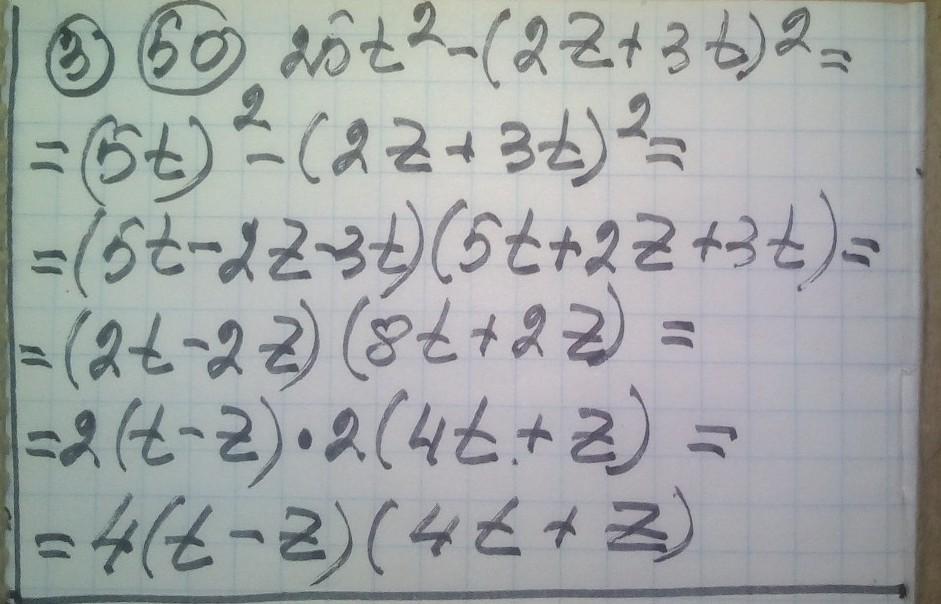 ③ 50 25t² - (2z + 3t)² =
= (5t)² - (2z + 3t)² =
= (5t - 2z - 3t)(5t + 2z + 3t) =
= (2t - 2z)(8t + 2z) =
= 2(t - z) · 2(4t + z) =
= 4(t - z)(4t + z)